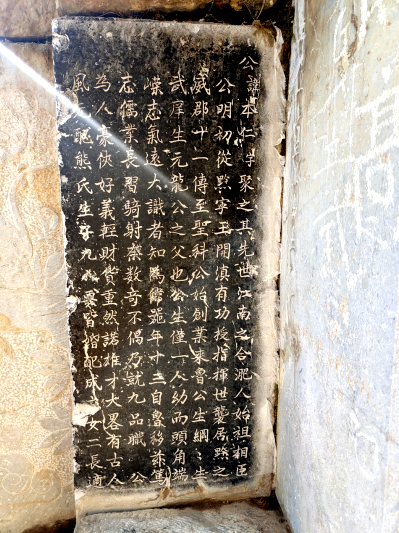 公諱本仁字聚之其先世江南之合淝人始祖翔臣
公明初從黔寧王開滇有功授指揮世襲居黔之
威郡十一傳至聖科公始創業東魯公生綱綱生
武庠生元龍公之父也公生僅一人幼而頭角端
嶸志氣遠大識者知為能年十三自魯移
志儒業長習騎射奈數奇不偶乃就九品職公
為人豪俠好義輕財貨重然諾雄才大畧有古人
風配熊氏生子九皆婚配成女二長適